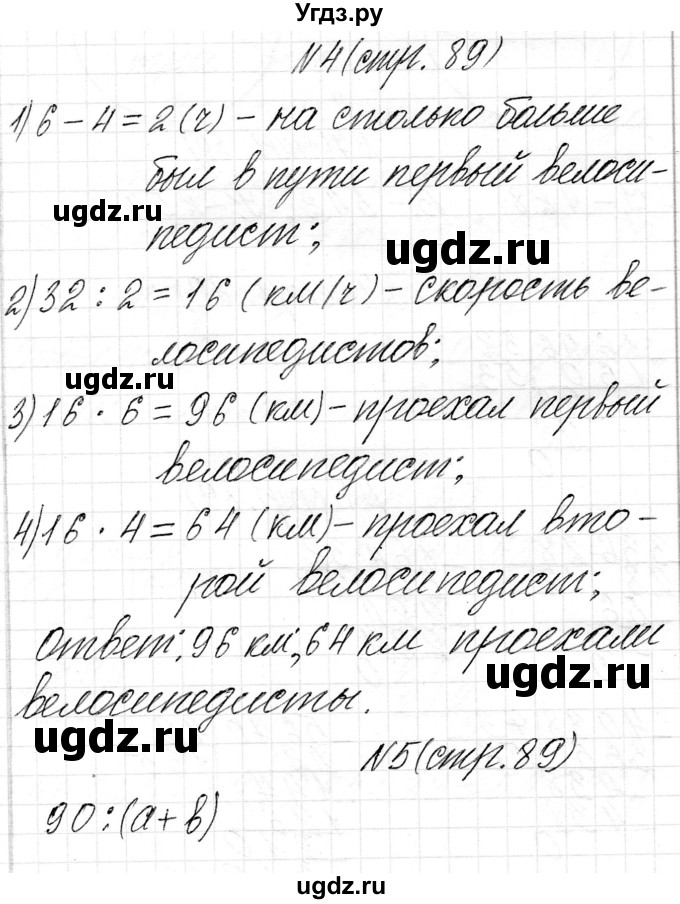 Угдз.ру
№4(стр. 89)
1) 6 - 4 = 2 (ч) - на столько больше
был в пути первый велоси-
ugdz.ru
педист;
ugdz.ru
2) 32 : 2 = 16 (км/ч) - скорость ве-
лосипедистов;
ugdz.ru
3) 16 · 6 = 96 (км) - проехал первый
велосипедист;
4) 16 · 4 = 64 (км) - проехал вто-
рой велосипедист;
Ответ: 96 км, 64 км проехали
ugdz.ru
велосипедисты.
ugdz.ru
№5(стр. 89)
90 : (a + b)
ugdz.ru
ugdz.ru